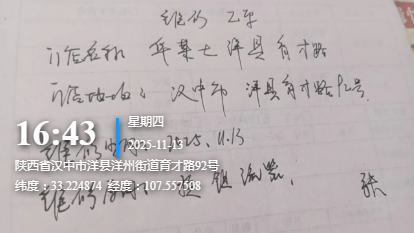 维修工单
门店名称 洋县育才路
门店地址:汉中市 洋县育才路92号
16:43
星期四
2025-11-13
维修时间 2025.11.13
陕西省汉中市洋县洋州街道育才路92号
纬度:33.224874 经度:107.557508
维修内容:换 张